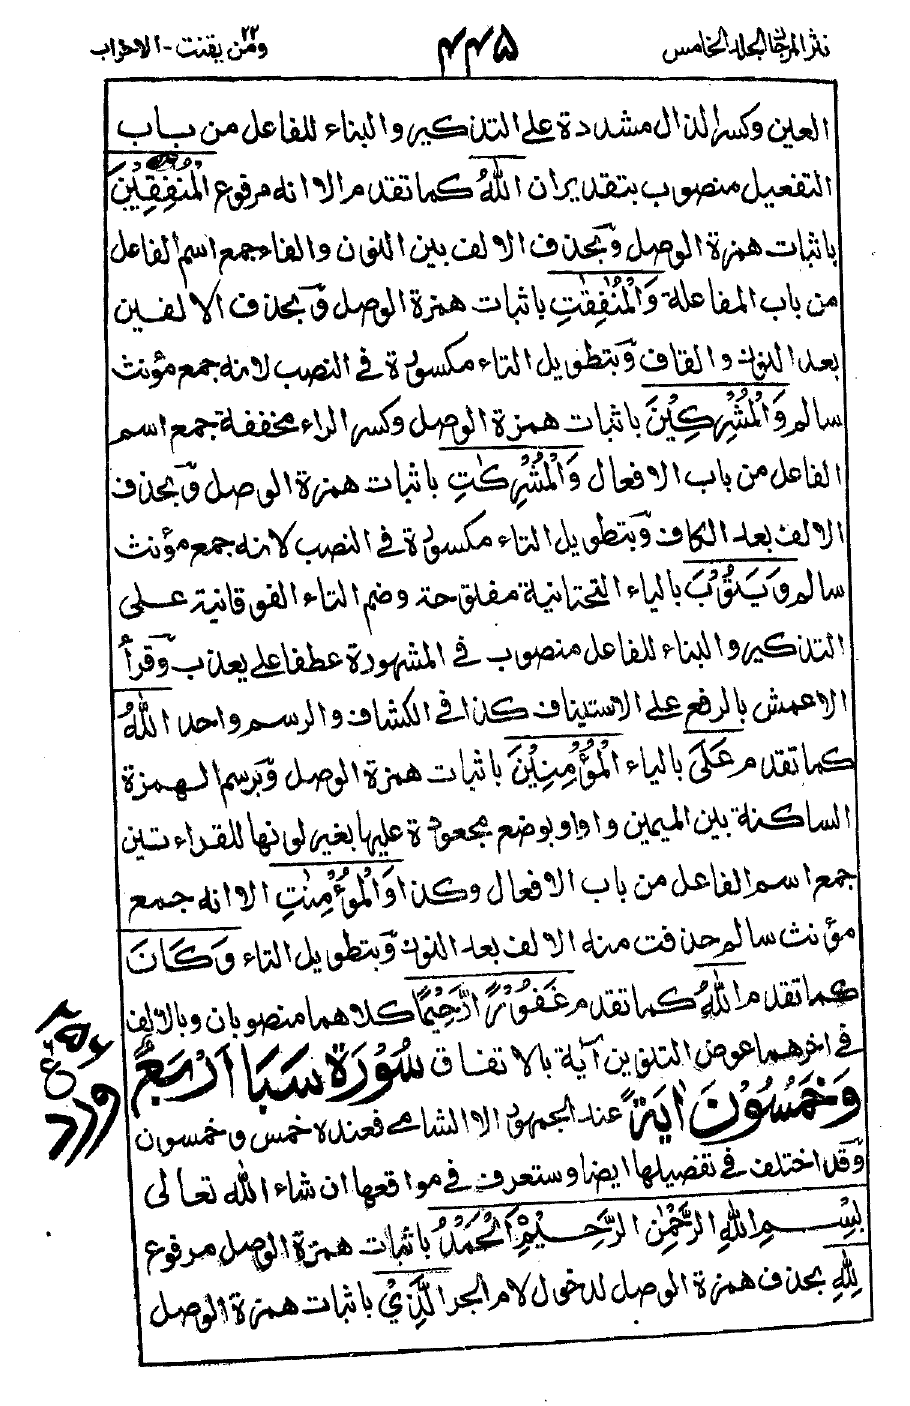 نثر المرجان المجلد الخامس
۴۴۵
ومن يقنت ۲۲ - الاحزاب
العين وكسر الذال مشددة على التذكير والبناء للفاعل من باب
التفعيل منصوب بتقدير ان اللهُ كما تقدم الا انه مرفوع الْمُنٰفِقِيْنَ
باثبات همزة الوصل وبحذف الالف بين النون والفاء جمع اسم الفاعل
من باب المفاعلة وَالْمُنٰفِقٰتِ باثبات همزة الوصل وبحذف الالفين
بعد النون والقاف وبتطويل التاء مكسورة في النصب لانه جمع مؤنث
سالم وَالْمُشْرِكِيْنَ باثبات همزة الوصل وكسر الراء مخففة جمع اسم
الفاعل من باب الافعال وَالْمُشْرِكٰتِ باثبات همزة الوصل وبحذف
الالف بعد الكاف وبتطويل التاء مكسورة في النصب لانه جمع مؤنث
سالم وَيَتُوْبَ بالياء التحتانية مفتوحة وضم التاء الفوقانية على
التذكير والبناء للفاعل منصوب في المشهورة عطفا على يعذب وقرأ
الاعمش بالرفع على الاستيناف كذا في الكشاف والرسم واحد اللهُ
كما تقدم عَلَى بالياء الْمُؤْمِنِيْنَ باثبات همزة الوصل وبرسم الهمزة
الساكنة بين الميمين واوا وبوضع مجعودة عليها بغير لونها للقراءتين
جمع اسم الفاعل من باب الافعال وكذا وَالْمُؤْمِنٰتِ الا انه جمع
مؤنث سالم حذفت منه الالف بعد النون وبتطويل التاء وَكَانَ
كما تقدم اللهُ كما تقدم غَفُوْرًا رَّحِيْمًا كلاهما منصوبان وبالالف
في اخرهما عوض التنوين آية بالاتفاق سُوْرَةُ سَبَا اَرْبَعٌ
وَخَمْسُوْنَ اٰيَةً عند الجمهور الا الشامي فعنده خمس وخمسون
وقد اختلف في تفصيلها ايضا وستعرف في مواقعها ان شاء الله تعالى
بِسْمِ اللهِ الرَّحْمٰنِ الرَّحِيْمِ اَلْحَمْدُ باثبات همزة الوصل مرفوع
لِلّٰهِ بحذف همزة الوصل لدخول لام الجر الَّذِيْ باثبات همزة الوصل